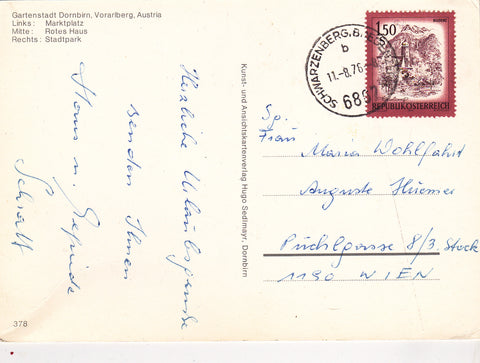 Gartenstadt Dornbirn, Vorarlberg, Austria
Links: Marktplatz
Mitte: Rotes Haus
Rechts: Stadtpark
Herzliche Urlaubsgrüße
senden Ihnen
Hans u.
Schratt
378
Kunst- und Ansichtskartenverlag Hugo Sedlmayr, Dornbirn
SCHWARZENBERG, B.
b
11.-8.76
6867
1.50
REPUBLIK ÖSTERREICH
Frau
Maria Wohlfahrt
Auguste Huemer
Püchlgasse 8/3. Stock
1190 WIEN